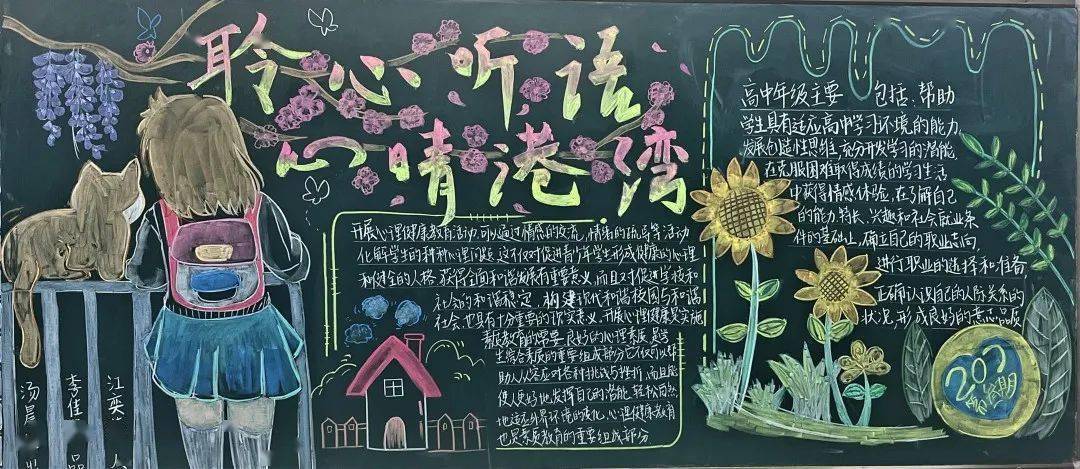 聆心听语
心晴港湾
开展心理健康教育活动,可以通过情感的交流,情绪的疏离等活动
化解学生的种种心理问题,这不仅对促进青少年学生形成健康的心理
和健全的人格,获得全面和谐发展有重要意义,而且对促进学校和
社会的和谐稳定,构建现代和谐校园与和谐
社会,也具有十分重要的现实意义,开展心理健康是实施
素质教育的需要,良好的心理素质,是学
生综合素质的重要组成部分它不仅可以帮
助人从容应对各种挑战与挫折,而且能
使人更好地发挥自己的潜能,轻松自然
地适应外界环境的变化,心理健康教育
也是素质教育的重要组成部分
高中年级主要 包括:帮助
学生具有适应高中学习环境的能力,
发展创造性思维,充分开发学习的潜能,
在克服困难取得成绩的学习生活
中获得情感体验,在了解自己
的能力、特长、兴趣和社会就业条
件的基础上,确立自己的职业志向,
进行职业的选择和准备
正确认识自己的人际关系的
状况,形成良好的意志品质
江奕
李佳
汤晨
207